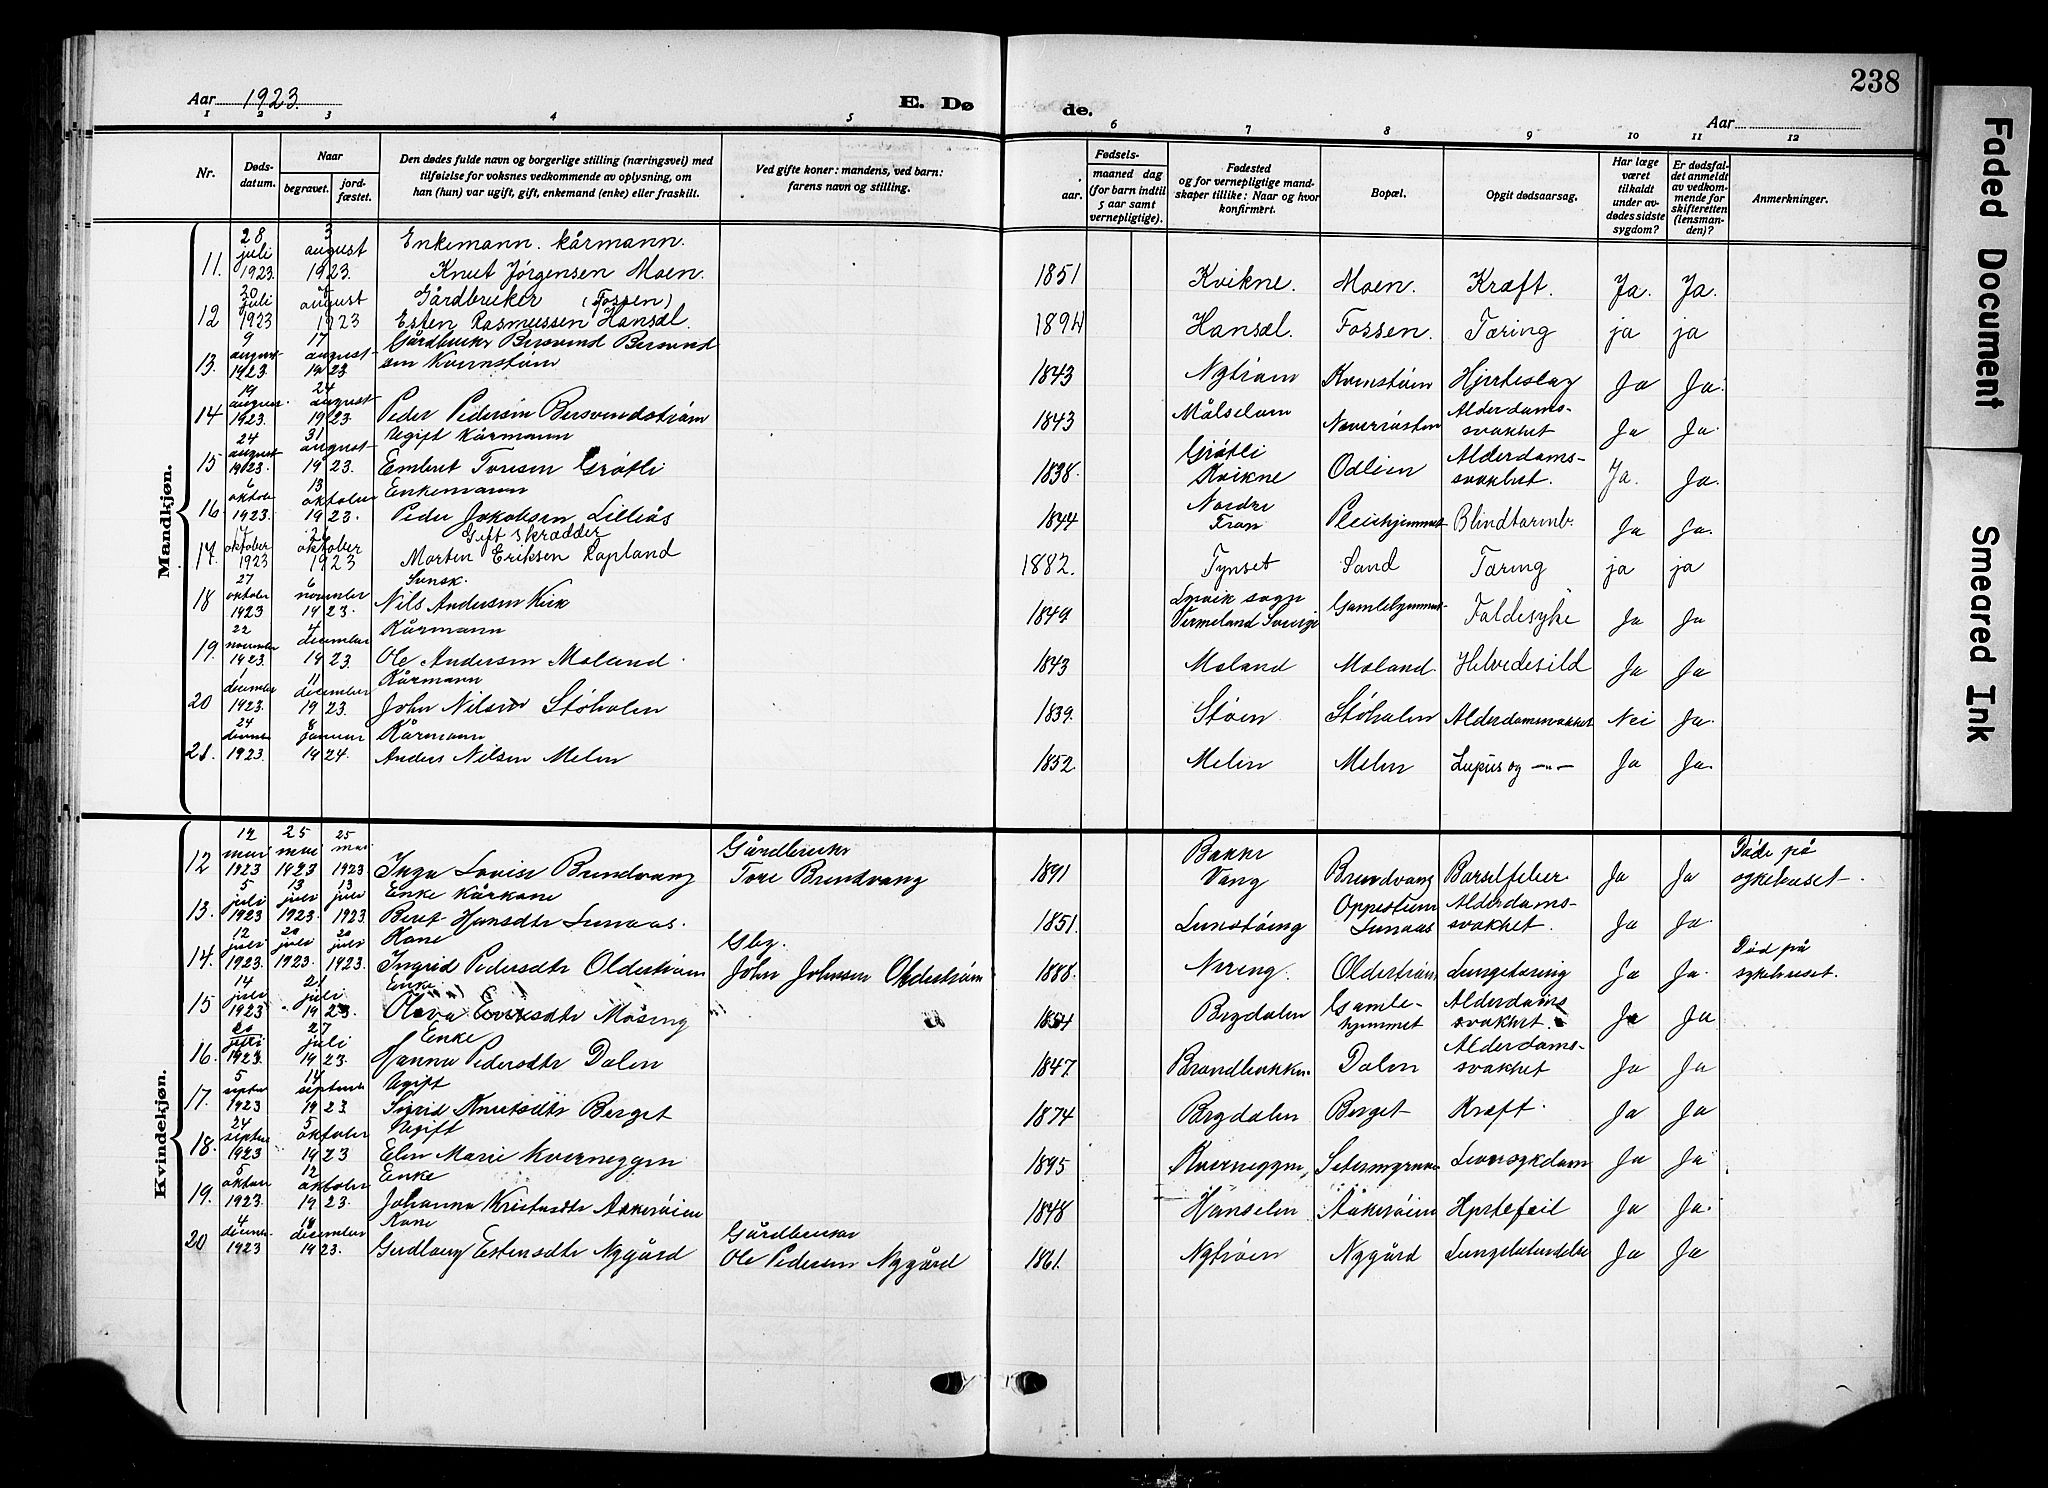 238
Aar 1923.
E. Dø de.
Aar
1 2 3 4 5 6 7 8 9 10 11 12
Nr.
Døds-
datum.
Naar
begravet.
jord-
fæstet.
Den dødes fulde navn og borgerlige stilling (næringsvei) med
tilføielse for voksnes vedkommende av oplysning, om
han (hun) var ugift, gift, enkemand (enke) eller fraskilt.
Ved gifte koner: mandens, ved barn:
farens navn og stilling.
Fødsels-
aar.
maaned dag
(for barn indtil
5 aar samt
vernepligtige).
Fødested
og for vernepligtige mand-
skaper tillike: Naar og hvor
konfirmert.
Bopæl.
Opgit dødsaarsag.
Har læge
været
tilkaldt
under av-
dødes sidste
sygdom?
Er dødsfal-
det anmeldt
av vedkom-
mende for
skifteretten
(lensman-
den)?
Anmerkninger.
Mandkjøn.
28 3 Enkemann. kårmann.
juli august
11. 1923. 1923. Knut Jörgensen Moen. 1851 Kvikne. Moen. Kræft. Ja. Ja.
20 juli august Gårdbruker (Fossen)
12 1923 1923 Esten Rasmussen Hansæl. 1894 Hansæl. Fossen. Tæring ja ja
9 17 Gårdbruker Bersvend Bersvend
13. august 1923. august 1923. sen Kvernstrøm 1843 Nytrøen Hjerteslag Ja Ja.
19 24
14 1923. august 1923 Peder Pedersen Bersvendstrøm 1843 Alderdoms-
svakhet Ja Ja.
24 31 Ugift Kårmann
15 august 1923. august 1923. Embret Toresen Grøtli 1838. Grøtli
Kvikne Odlien Alderdoms-
svakhet. Ja. Ja.
6 13 Enkemann
16 oktober 1923. oktober 1923. Peder Jakobsen Lilleås 1844 Nordre
Blindtarmb. Ja Ja.
Gift Skrædder
17. oktober 1923 oktober 1923 Morten Eriksen Lapland 1882. Tynset Sand Tæring ja ja
27 6 Svensk.
18 oktober 1923 november 1923. Nils Andersen Kirk 1849 sogn
Vermeland Sverige Faldesyke Ja Ja
22 4 Kårmann
19. november 1923. december 1923. Ole Andersen Moland. 1843 Moland Moland. Helvedesild Ja Ja
1 11 Kårmann
20 december 1923. december 1923. John Nilsen Støholen 1839. Støen Støholen Alderdomssvakhet Nei Ja.
24 8 Kårmann
21. 1923. januar 1924. Anders Nilsen Melen 1852 Melen Melen Lupus og —"— Ja Ja.
Kvindekjøn.
25 25 Gårdbruker Bakke Døde på
12 mai 1923 mai 1923 mai 1923 Inga Lovise Brendvang Tore Brendvang 1891 Vang Brendvang Barselfeber Ja Ja sykehuset.
5 13 13 Enke Kårkone
13. juli 1923 juli 1923. juli 1923 Beret Hansdtr Lunaas. 1851. Lunaas Alderdoms-
svakhet. Ja Ja.
12 20 20 Kone Gbr. Død på
14. juli 1923. juli 1923. juli 1923. Ingrid Pedersdtr Olderstrøm John Johnsen Olderstrøm 1888. Olderstrøm Lungetæring Ja Ja. sykehuset.
14 Enke
15 juli 1923 juli 1923 Olava Moseng Bigdalen Gamle-
hjemmet Alderdoms
svakhet. Ja Ja
27 Enke
16 juli 1923. juli 1923. Hanna Pedersdtr Dalen 1847. Brandbakken Dalen Alderdoms-
svakhet Ja Ja
5 14 Ugift
17. 1923 september 1923 Sigrid Knutsdtr Berget 1874 Bigdalen Berget Kræft. Ja Ja
24 5 Ugift
18. 1923 oktober 1923 Elen Marie Kverneggen 1895 Kverneggen, Leversykdom Ja Ja
5 12 Enke
19. 1923. oktober 1923. Johanna Kristensdtr Aakerøien 1848 Aakerøien Hjertefeil Ja Ja.
4 Kone Gårdbruker
20 1923 december 1923. Gudlaug Estensdtr Nygård Ole Pedersen Nygård 1861. Nytrøen Nygård Lungebetændelse Ja Ja
Faded Document
Smeared Ink